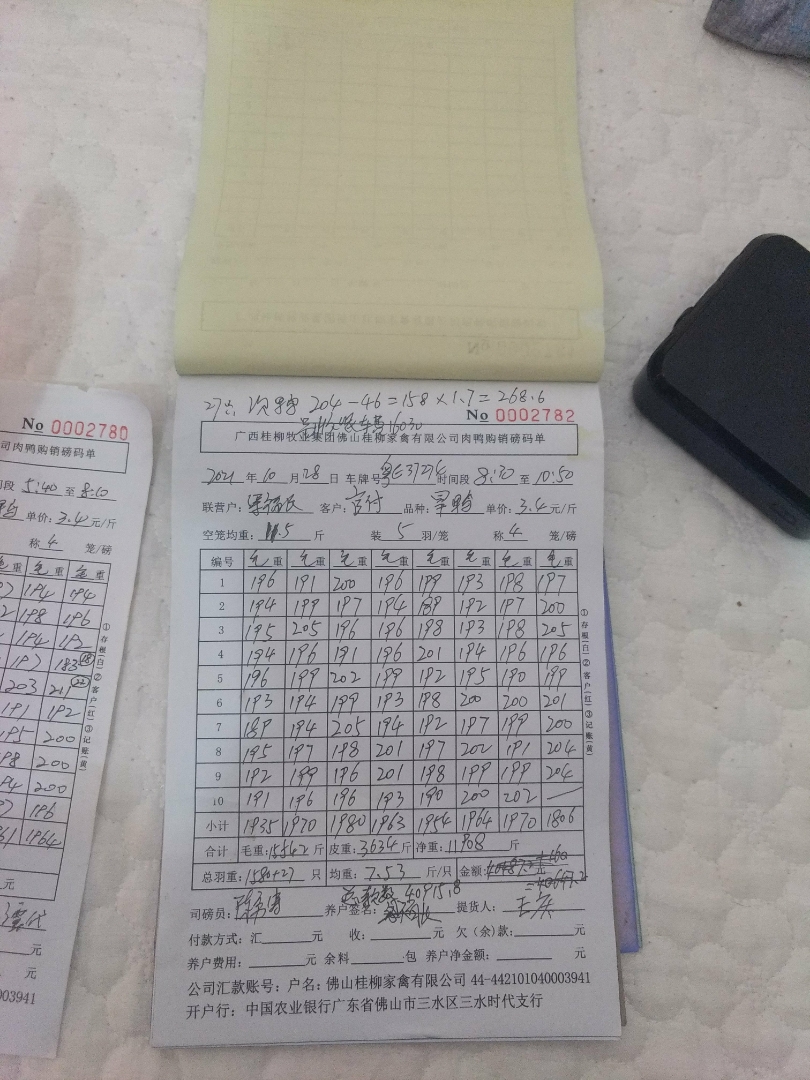 27只 次鸭 204-46=158×1.7=268.6
16030
No 0002782
广西桂柳牧业集团佛山桂柳家禽有限公司肉鸭购销磅码单
2021 年 10 月 28 日 车牌号 粤E37274 时间段 8:30 至 10:50
联营户: 客户: 官付 品种: 旱鸭 单价: 3.4 元/斤
空笼均重: 11.5 斤 装 5 羽/笼 称 4 笼/磅
编号 毛重 毛重 毛重 毛重 毛重 毛重 毛重 毛重
1 196 191 200 196 199 193 198 197
2 194 199 197 194 189 192 197 200
3 195 205 196 196 198 193 198 205
4 194 196 191 196 201 194 196 196
5 196 199 202 199 192 195 190 199
6 193 194 199 193 198 200 200 201
7 189 194 205 194 192 197 199 200
8 195 197 198 201 197 202 191 204
9 192 199 196 201 198 199 199 204
10 191 196 196 193 190 200 202 —
小计 1935 1970 1980 1963 1954 1964 1970 1806
合计 毛重: 15542 斤 皮重: 3634 斤 净重: 11908 斤
总羽重: 1580+27 只 均重: 7.53 斤/只 金额:
总款数 40915.8
司磅员: 养户签名: 提货人:
付款方式: 汇 元 收: 元 欠(余)款: 元
养户费用: 元 余料 包 养户净金额: 元
公司汇款账号: 户名: 佛山桂柳家禽有限公司 44-442101040003941
开户行: 中国农业银行广东省佛山市三水区三水时代支行
①存根(白)②客户(红)③记账(黄)
No 0002780
司肉鸭购销磅码单
间段 5:40 至 8:10
单价: 3.4 元/斤
称 4 笼/磅
重 毛重 毛重
194 194
198 196
194 192
197 183 (18)
203 211 (22)
191 192
195 200
198 200
194 200
196
1964
①存根(白)②客户(红)③记账(黄)
元
元
元
003941